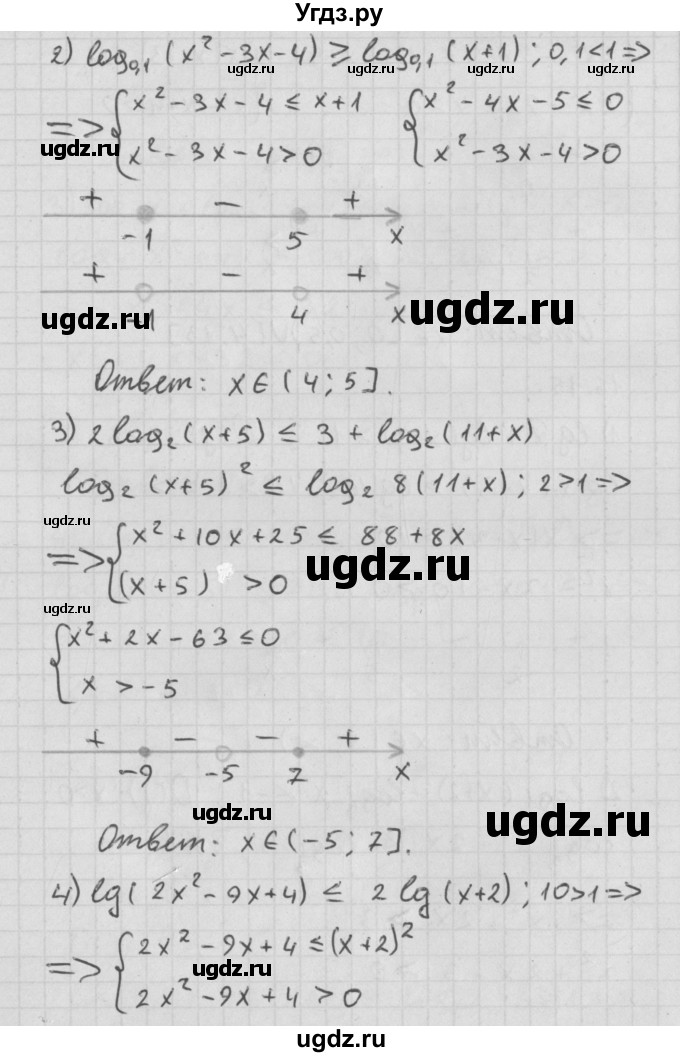 Угдз.ру
2) log₀,₁ (x² - 3x - 4) ≥ log₀,₁ (x+1) ; 0,1 < 1 =>
ugdz.ru ugdz.ru ugdz.ru
=> { x² - 3x - 4 ≤ x + 1 { x² - 4x - 5 ≤ 0
x² - 3x - 4 > 0 x² - 3x - 4 > 0
ugdz.ru ugdz.ru
+ - +
-1 5 x
+ - +
-1 4 x
ugdz.ru ugdz.ru
Ответ: x ∈ (4; 5].
3) 2 log₂ (x+5) ≤ 3 + log₂ (11+x)
ugdz.ru ugdz.ru
log₂ (x+5)² ≤ log₂ 8(11+x) ; 2 > 1 =>
ugdz.ru
=> { x² + 10x + 25 ≤ 88 + 8x
(x + 5) > 0
ugdz.ru
ugdz.ru
{ x² + 2x - 63 ≤ 0
x > -5
+ - - +
-9 -5 7 x
ugdz.ru
ugdz.ru
Ответ: x ∈ (-5; 7].
4) lg( 2x² - 9x + 4) ≤ 2 lg (x+2) ; 10 > 1 =>
ugdz.ru ugdz.ru
=> { 2x² - 9x + 4 ≤ (x+2)²
ugdz.ru
2x² - 9x + 4 > 0
ugdz.ru